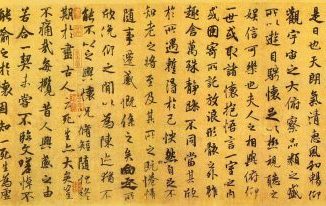 是日也天朗氣清惠風和暢仰
觀宇宙之大俯察品類之盛
所以遊目騁懷足以極視聽之
娛信可樂也夫人之相與俯仰
一世或取諸懷抱悟言一室之內
或因寄所託放浪形骸之外雖
趣舍萬殊靜躁不同當其欣
於所遇暫得於己快然自足不
知老之將至及其所之既惓情
隨事遷感慨係之矣向之所
欣俛仰之間以為陳迹猶不
能不以之興懷況脩短隨化終
期於盡古人云死生亦大矣豈
不痛哉每攬昔人興感之由
若合一契未嘗不臨文嗟悼不
能喻之於懷固知一死生為虛